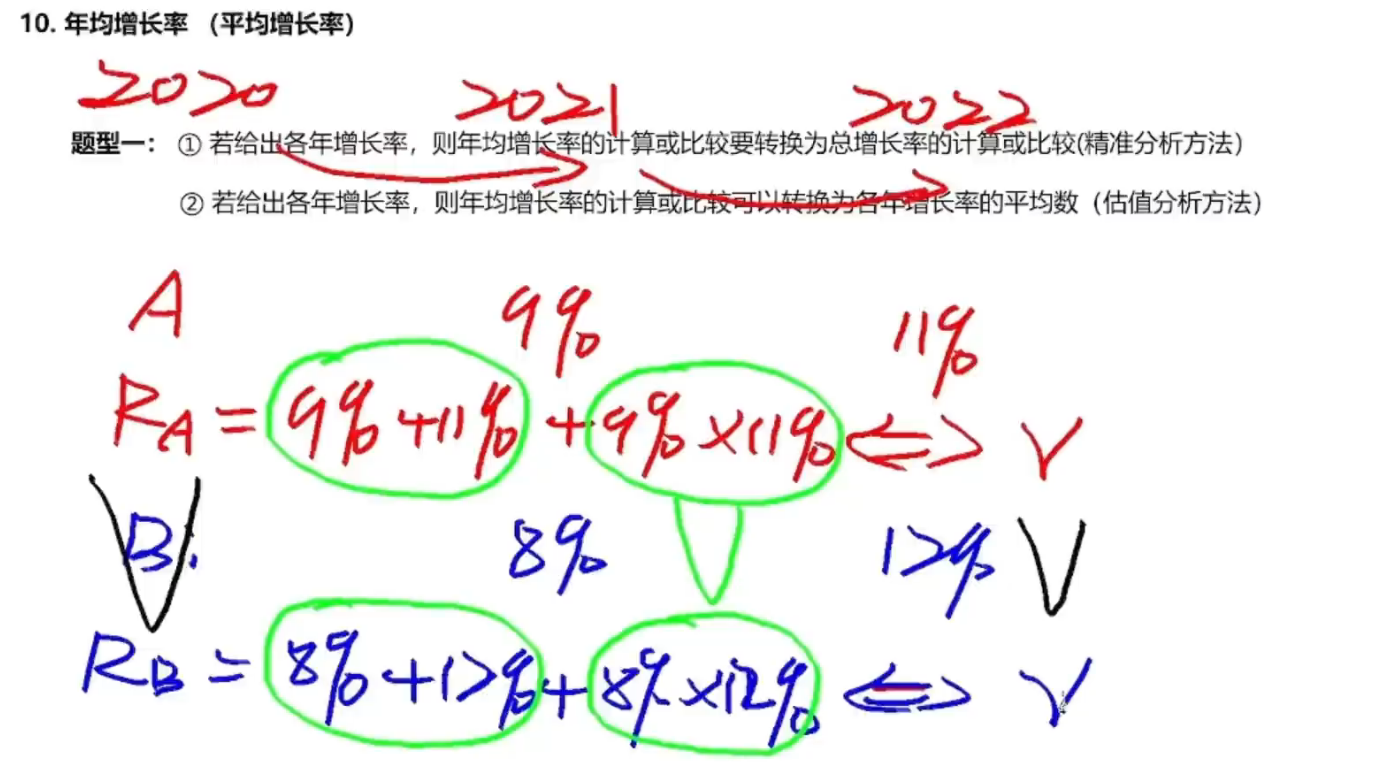 10. 年均增长率 （平均增长率）
2020 2021 2022
题型一： ① 若给出各年增长率，则年均增长率的计算或比较要转换为总增长率的计算或比较(精准分析方法）
② 若给出各年增长率，则年均增长率的计算或比较可以转换为各年增长率的平均数（估值分析方法）
A 9% 11%
RA = 9% + 11% + 9% × 11% ⇔ r
B. 8% 12%
RB = 8% + 12% + 8% × 12% ⇔ r